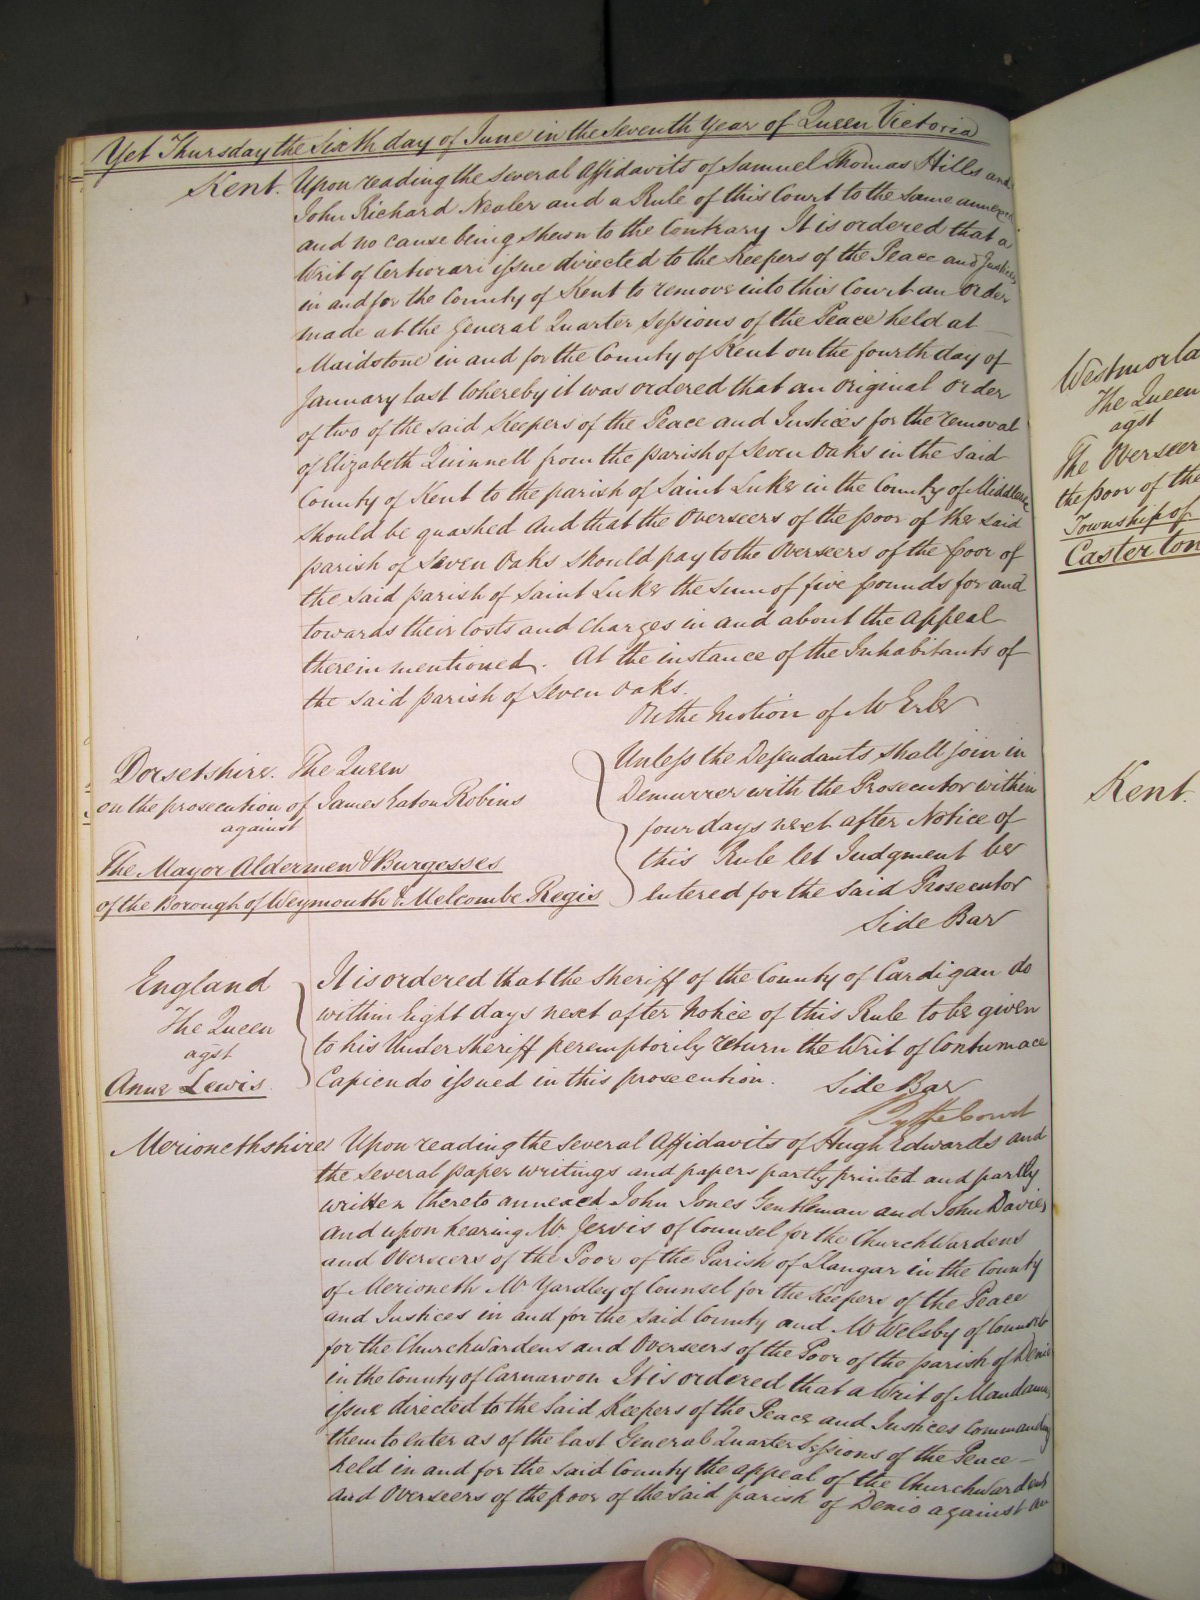 Yet Thursday the Sixth day of June in the Seventh Year of Queen Victoria
Kent. Upon reading the several Affidavits of Samuel Thomas Hills and
John Richard Nealer and a Rule of this Court to the same annexed
and no cause being shewn to the Contrary It is ordered that a
Writ of Certiorari issue directed to the Keepers of the Peace and Justices
in and for the County of Kent to remove into this Court an Order
made at the General Quarter Sessions of the Peace held at
Maidstone in and for the County of Kent on the fourth day of
January last Whereby it was ordered that an Original Order
of two of the said Keepers of the Peace and Justices for the removal
of Elizabeth Quinnell from the parish of Seven Oaks in the said
County of Kent to the parish of Saint Luke in the County of Middlesex
should be quashed And that the Overseers of the poor of the said
parish of Seven Oaks should pay to the Overseers of the poor of
the said parish of Saint Luke the sum of five pounds for and
towards their Costs and Charges in and about the Appeal
therein mentioned. At the instance of the Inhabitants of
the said parish of Seven Oaks.
On the Motion of Mr Erle
Dorsetshire. The Queen
on the prosecution of James Eaton Robins
against
The Mayor Aldermen & Burgesses
of the Borough of Weymouth & Melcombe Regis
Unless the Defendants shall join in
Demurrer with the Prosecutor within
four days next after Notice of
this Rule let Judgment be
Entered for the said Prosecutor
Side Bar
England
The Queen
agst
Anne Lewis
It is ordered that the Sheriff of the County of Cardigan do
within Eight days next after Notice of this Rule to be given
to his Under Sheriff peremptorily return the Writ of Contumace
Capiendo issued in this prosecution. Side Bar
By the Court
Merionethshire Upon reading the several Affidavits of Hugh Edwards and
the several paper writings and papers partly printed and partly
written thereto annexed John Jones Gentleman and John Davies
And upon hearing Mr Jervis of Counsel for the Church Wardens
and Overseers of the Poor of the Parish of Llangar in the County
of Merioneth Mr Yardley of Counsel for the Keepers of the Peace
and Justices in and for the said County and Mr Welsby of Counsel
for the Churchwardens and Overseers of the Poor of the parish of Denio
in the County of Carnarvon It is ordered that a Writ of Mandamus
issue directed to the said Keepers of the Peace and Justices Commanding
them to enter as of the last General Quarter Sessions of the Peace
held in and for the said County the appeal of the Churchwardens
and Overseers of the poor of the said parish of Denio against an
Westmorla
The Queen
agst
The Overseer
the poor of the
Township of
Casterton
Kent.